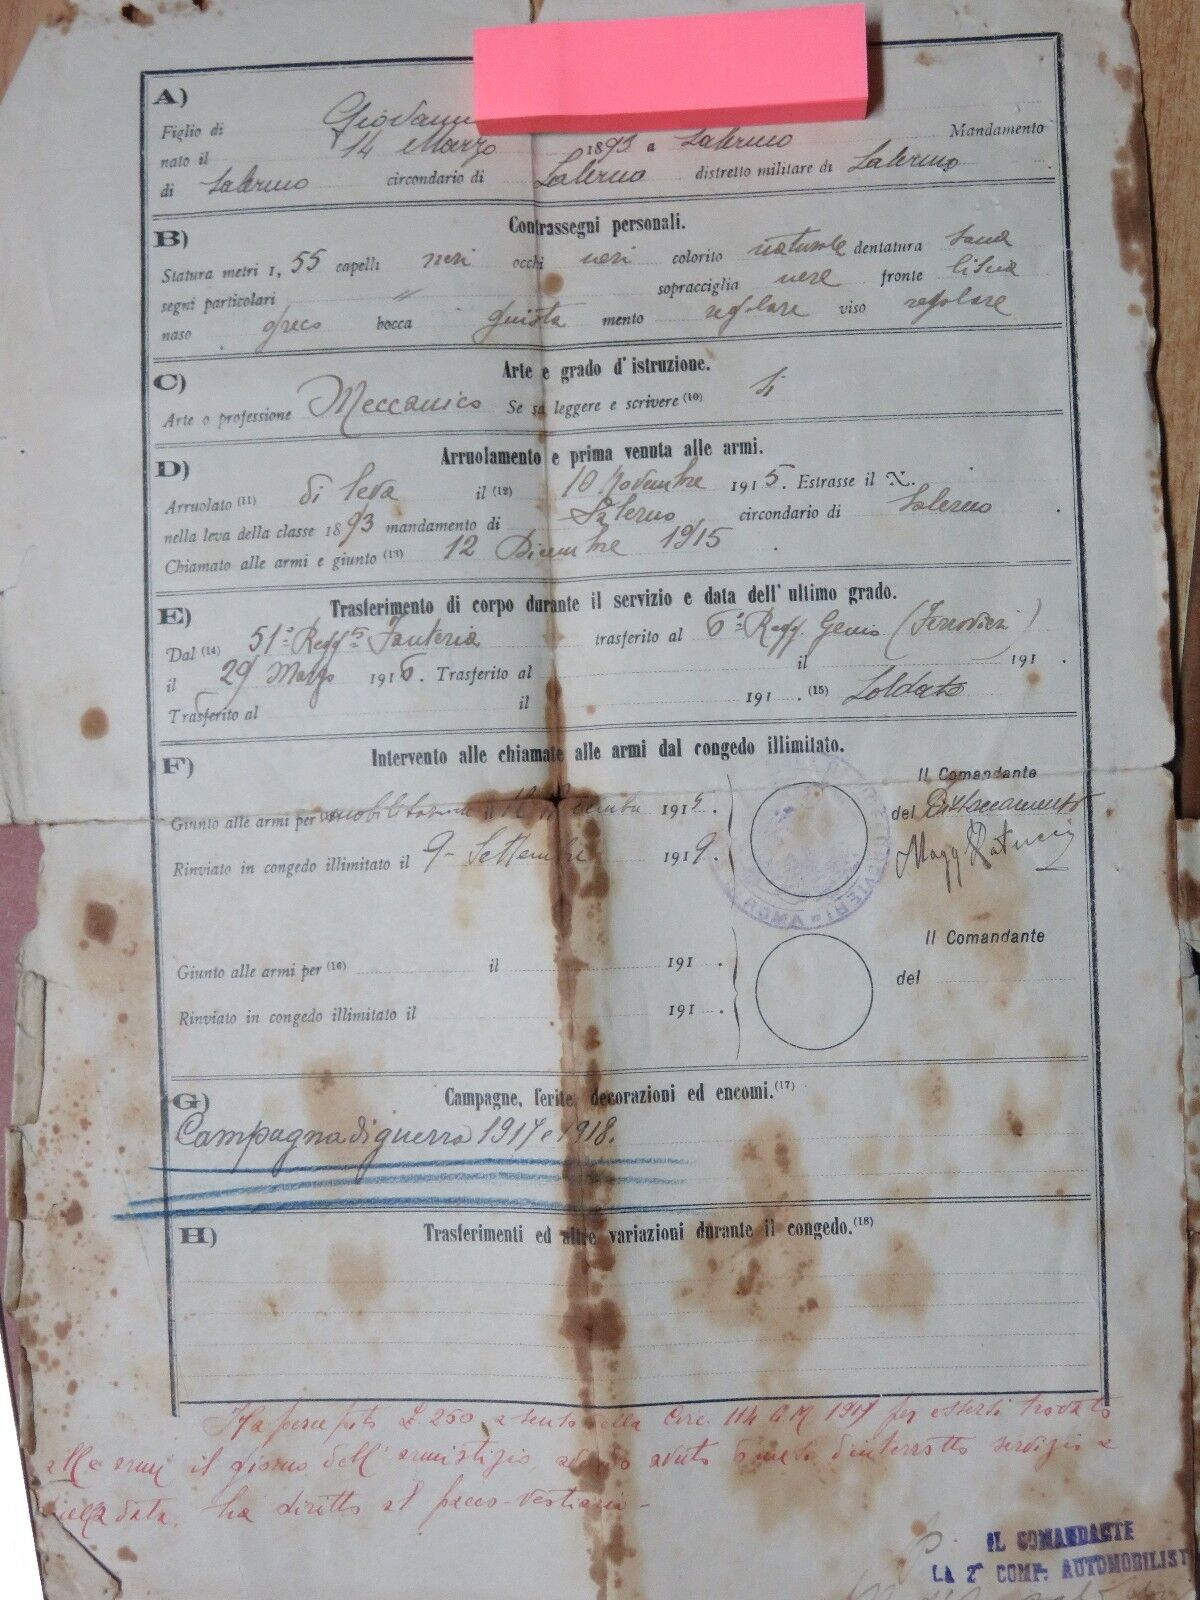 A)
Figlio di Giovanni
nato il 14 Marzo 1893 a Salerno Mandamento
di Salerno circondario di Salerno distretto militare di Salerno
B) Contrassegni personali.
Statura metri 1, 55 capelli neri occhi neri colorito naturale dentatura sana
segni particolari " sopracciglia nere fronte liscia
naso greco bocca giusta mento regolare viso regolare
C) Arte e grado d'istruzione.
Arte o professione Meccanico Se sa leggere e scrivere (10) Si
D) Arruolamento e prima venuta alle armi.
Arruolato (11) di leva il (12) 10 Novembre 1915. Estrasse il N.
nella leva della classe 1893 mandamento di Salerno circondario di Salerno
Chiamato alle armi e giunto (13) 12 Dicembre 1915
E) Trasferimento di corpo durante il servizio e data dell'ultimo grado.
Dal (14) 51° Regg. Fanteria trasferito al 6° Regg. Genio (Ferrovieri)
il 29 Marzo 1916. Trasferito al il 191 .
Trasferito al il 191 . (15) Soldato
F) Intervento alle chiamate alle armi dal congedo illimitato.
Il Comandante
Giunto alle armi per mobilitazione il 12 Dicembre 1915 del Distaccamento
Rinviato in congedo illimitato il 9 - Settembre 1919. Magg.
Il Comandante
Giunto alle armi per (16) il 191 . del
Rinviato in congedo illimitato il 191 .
G) Campagne, ferite, decorazioni ed encomi.(17)
Campagna di guerra 1917 e 1918.
H) Trasferimenti ed altre variazioni durante il congedo.(18)
Ha £ 250 a senso della Circ. 114 G M 1917 per essersi trovato
alle armi il giorno dell'armistizio, avendo avuto d'interrotto servizio a
quella data, ha diritto al pacco-vestiario -
IL COMANDANTE
LA 2ª COMP. AUTOMOBILIST